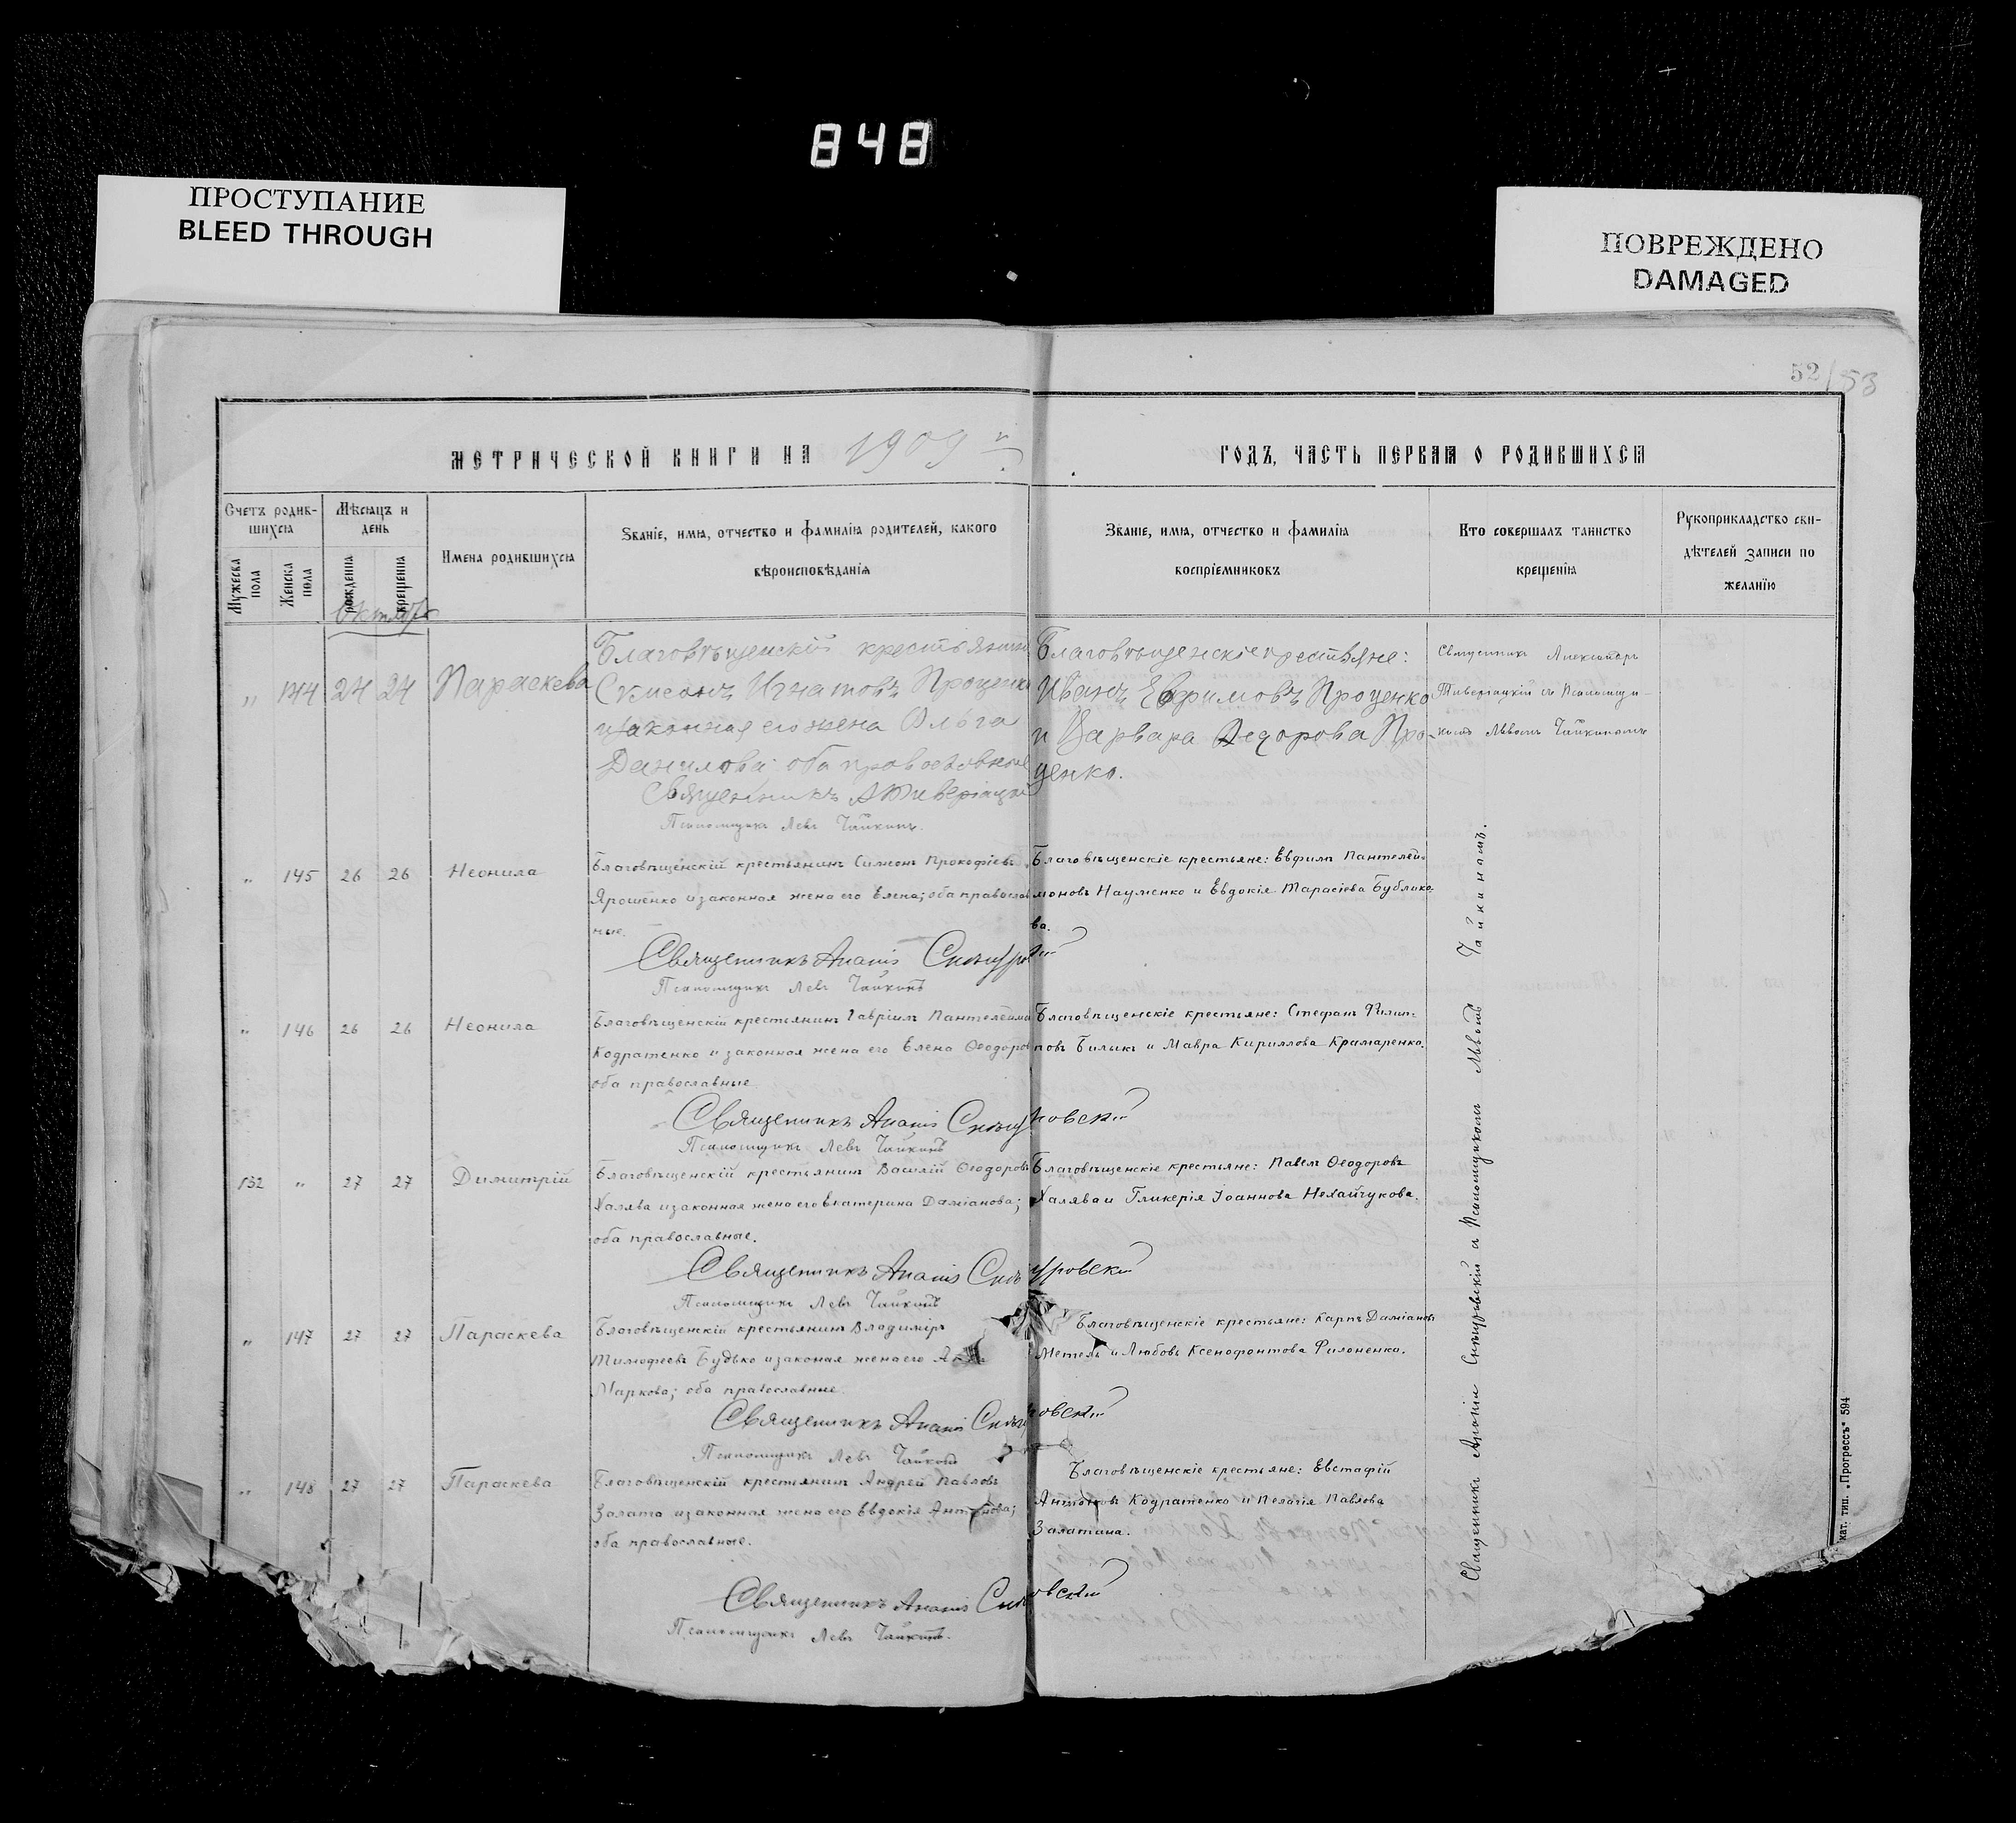 848
ПРОСТУПАНИЕ
BLEED THROUGH
ПОВРЕЖДЕНО
DAMAGED
52/53
МЕТРИЧЕСКОЙ КНИГИ НА 1909 г.
ГОДЪ, ЧАСТЬ ПЕРВАЯ О РОДИВШИХСЯ
Счетъ родив-
шихся
Мужеска
пола
Женска
пола
Мѣсяцъ и
день
рожденія
крещенія
Имена родившихся
Званіе, имя, отчество и фамилія родителей, какого
вѣроисповѣданія
Званіе, имя, отчество и фамилія
воспріемниковъ
Кто совершалъ таинство
крещенія
Рукоприкладство сви-
дѣтелей записи по
желанію
Октябрь
„ 144 24 24 Параскева
Благовѣщенскій крестьянинъ
Симеонъ Игнатовъ Проценко
и законная его жена Ольга
Данилова оба православные
Священникъ А Тивериацкій
Псаломщикъ Левъ Чайкинъ.
Благовѣщенскіе крестьяне:
Иванъ Ефимовъ Проценко
и Варвара Федорова Про-
ценко.
Священникъ Александръ
Тивериацкій съ Псаломщи-
комъ Львомъ Чайкинымъ
„ 145 26 26 Неонила
Благовѣщенскій крестьянинъ Симеонъ Прокофіевъ
Ярошенко и законная жена его Елена; оба православ
ные.
Священникъ Ананія Снѣгуровскій
Псаломщикъ Левъ Чайкинъ
Благовѣщенскіе крестьяне: Евфимъ Пантелей-
моновъ Науменко и Евдокія Тарасіева Бублико-
ва.
„ 146 26 26 Неонила
Благовѣщенскій крестьянинъ Гавріилъ Пантелеймо
Кодратенко и законная жена его Елена Ѳеодоров
оба православные
Священникъ Ананія Снѣгуровскій
Псаломщикъ Левъ Чайкинъ
Благовѣщенскіе крестьяне: Стефанъ Филип-
повъ Билыкъ и Мавра Кириллова Крамаренко.
132 „ 27 27 Димитрій
Благовѣщенскій крестьянинъ Василій Ѳеодоровъ
Халява и законная жена его Екатерина Даміанова;
оба православные.
Священникъ Ананія Снѣгуровскій
Псаломщикъ Левъ Чайкинъ
Благовѣщенскіе крестьяне: Павелъ Ѳеодоровъ
Халява и Гликерія Іоаннова Нехайчукова.
„ 147 27 27 Параскева
Благовѣщенскій крестьянинъ Владиміръ
Тимофеевъ Будько и законая жена его
Маркова; оба православные
Священникъ Ананія Снѣгуровскій
Псаломщикъ Левъ Чайкинъ
Благовѣщенскіе крестьяне: Карпъ Даміановъ
Метель и Любовь Ксенофонтова Филоненко.
„ 148 27 27 Параскева
Благовѣщенскій крестьянинъ Андрей Павловъ
Залата и законная жена его Евдокія Антонова;
оба православные.
Священникъ Ананія Снѣгуровскій
Псаломщикъ Левъ Чайкинъ.
Благовѣщенскіе крестьяне: Евстафій
Антоновъ Кодратенко и Пелагія Павлова
Залатина.
Священникъ Ананія Снѣгуровскій и Псаломщикомъ Львомъ Чайкинымъ.
кат. тип. „Прогрессъ" 594